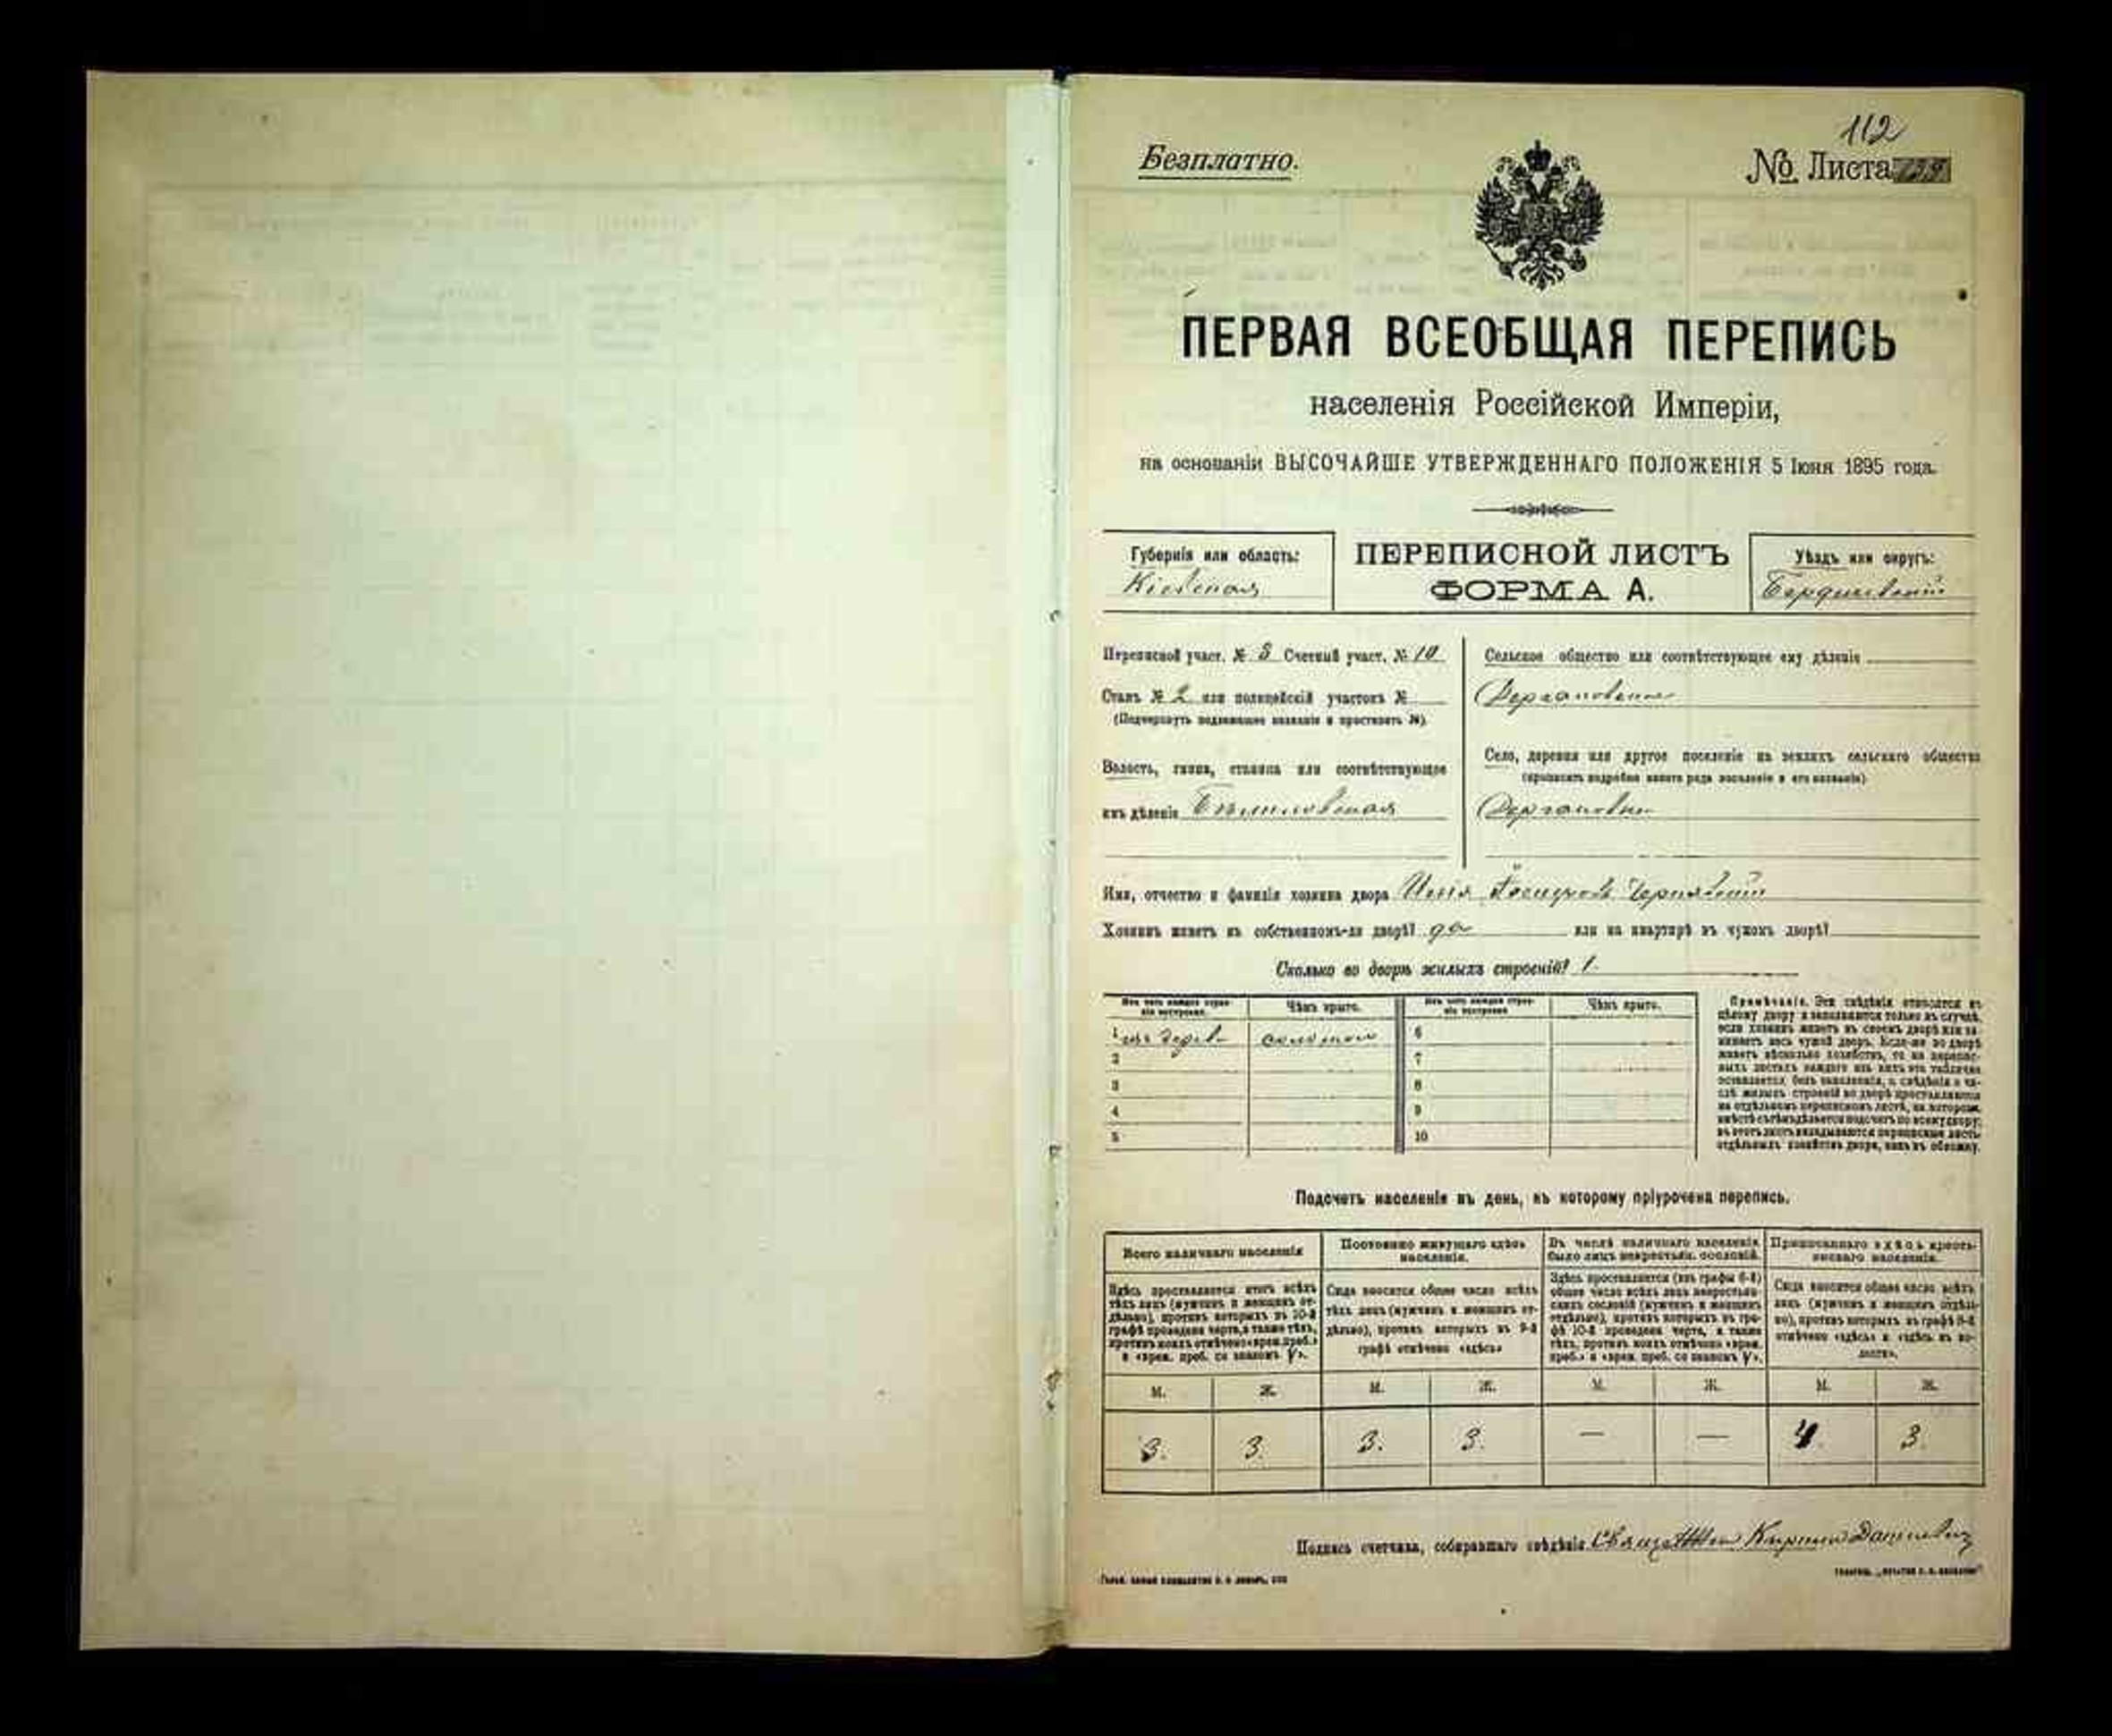 112
Безплатно.
№ Листа
ПЕРВАЯ ВСЕОБЩАЯ ПЕРЕПИСЬ
населенія Россійской Имперіи,
на основаніи ВЫСОЧАЙШЕ УТВЕРЖДЕННАГО ПОЛОЖЕНІЯ 5 Іюня 1895 года.
Губернія или область:
Кіевская
ПЕРЕПИСНОЙ ЛИСТЪ
ФОРМА А.
Уѣздъ или округъ:
Бердичевскій
Переписной участ. № 3 Счетный участ. № 10
Станъ № 2 или полицейскій участокъ №
(Подчеркнуть подлежащее названіе и проставить №).
Волость, гмина, станица или соотвѣтствующее
имъ дѣленіе
Сельское общество или соотвѣтствующее ему дѣленіе
Село, деревня или другое поселеніе на земляхъ сельскаго общества
(прописать подробно какого рода поселеніе и его названіе)
Имя, отчество и фамилія хозяина двора
Хозяинъ живетъ въ собственномъ-ли дворѣ? да или на квартирѣ въ чужомъ дворѣ?
Сколько во дворѣ жилыхъ строеній? 1.
Изъ чего каждое строеніе построено.
Чѣмъ крыто.
Изъ чего каждое строеніе построено
Чѣмъ крыто.
1 изъ дерев. соломою 6
2 7
3 8
4 9
5 10
Примѣчаніе. Эти свѣдѣнія относятся къ
цѣлому двору и заполняются только въ случаѣ,
если хозяинъ живетъ въ своемъ дворѣ или за-
нимаетъ весь чужой дворъ. Если-же во дворѣ
живетъ нѣсколько хозяйствъ, то на перепис-
ныхъ листахъ каждаго изъ нихъ эта табличка
оставляется безъ заполненія, а свѣдѣнія о чи-
слѣ жилыхъ строеній во дворѣ проставляются
на отдѣльномъ переписномъ листѣ, на которомъ
вмѣстѣ съ тѣмъ дѣлается подсчетъ по всему двору;
въ этотъ листъ вкладываются переписные листы
отдѣльныхъ хозяйствъ двора, какъ въ обложку.
Подсчетъ населенія въ день, къ которому пріурочена перепись.
Всего наличнаго населенія
Постоянно живущаго здѣсь
населенія.
Въ числѣ наличнаго населенія
было лицъ некрестьян. сословій.
Приписаннаго здѣсь кресть-
янскаго населенія.
Здѣсь проставляется итогъ всѣхъ
тѣхъ лицъ (мужчинъ и женщинъ от-
дѣльно), противъ которыхъ въ 10-й
графѣ проведена черта, а также тѣхъ,
противъ коихъ отмѣчено «врем. преб.»
и «врем. преб. со знакомъ V».
Сюда вносится общее число всѣхъ
тѣхъ лицъ (мужчинъ и женщинъ от-
дѣльно), противъ которыхъ въ 9-й
графѣ отмѣчено «здѣсь»
Здѣсь проставляется (изъ графы 6-й)
общее число всѣхъ лицъ некрестьян-
скихъ сословій (мужчинъ и женщинъ
отдѣльно), противъ которыхъ въ гра-
фѣ 10-й проведена черта, а также
тѣхъ, противъ коихъ отмѣчено «врем.
преб.» и «врем. преб. со знакомъ V».
Сюда вносится общее число всѣхъ
лицъ (мужчинъ и женщинъ отдѣль-
но), противъ которыхъ въ графѣ 8-й
отмѣчено «здѣсь» и «здѣсь въ во-
лости».
М. Ж. М. Ж. М. Ж. М. Ж.
3. 3. 3. 3. — — 4. 3.
Подпись счетчика, собиравшаго свѣдѣнія